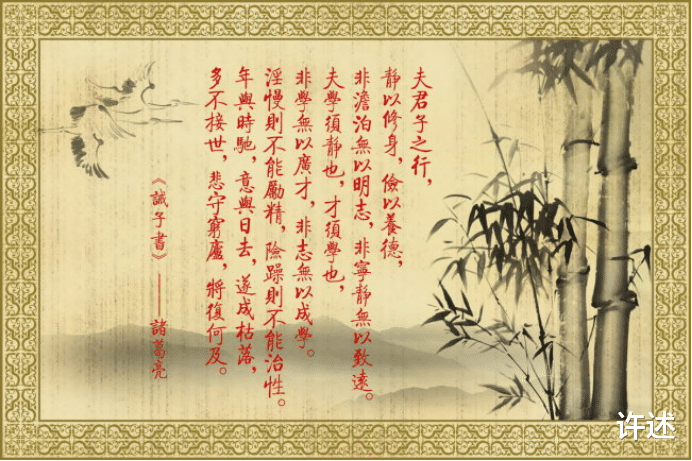 夫君子之行，
靜以修身，儉以養德，
非澹泊無以明志，非寧靜無以致遠。
夫學須靜也，才須學也，
非學無以廣才，非志無以成學。
淫慢則不能勵精，險躁則不能治性。
年與時馳，意與日去，遂成枯落，
多不接世，悲守窮廬，將復何及。
《誡子書》——諸葛亮
许述